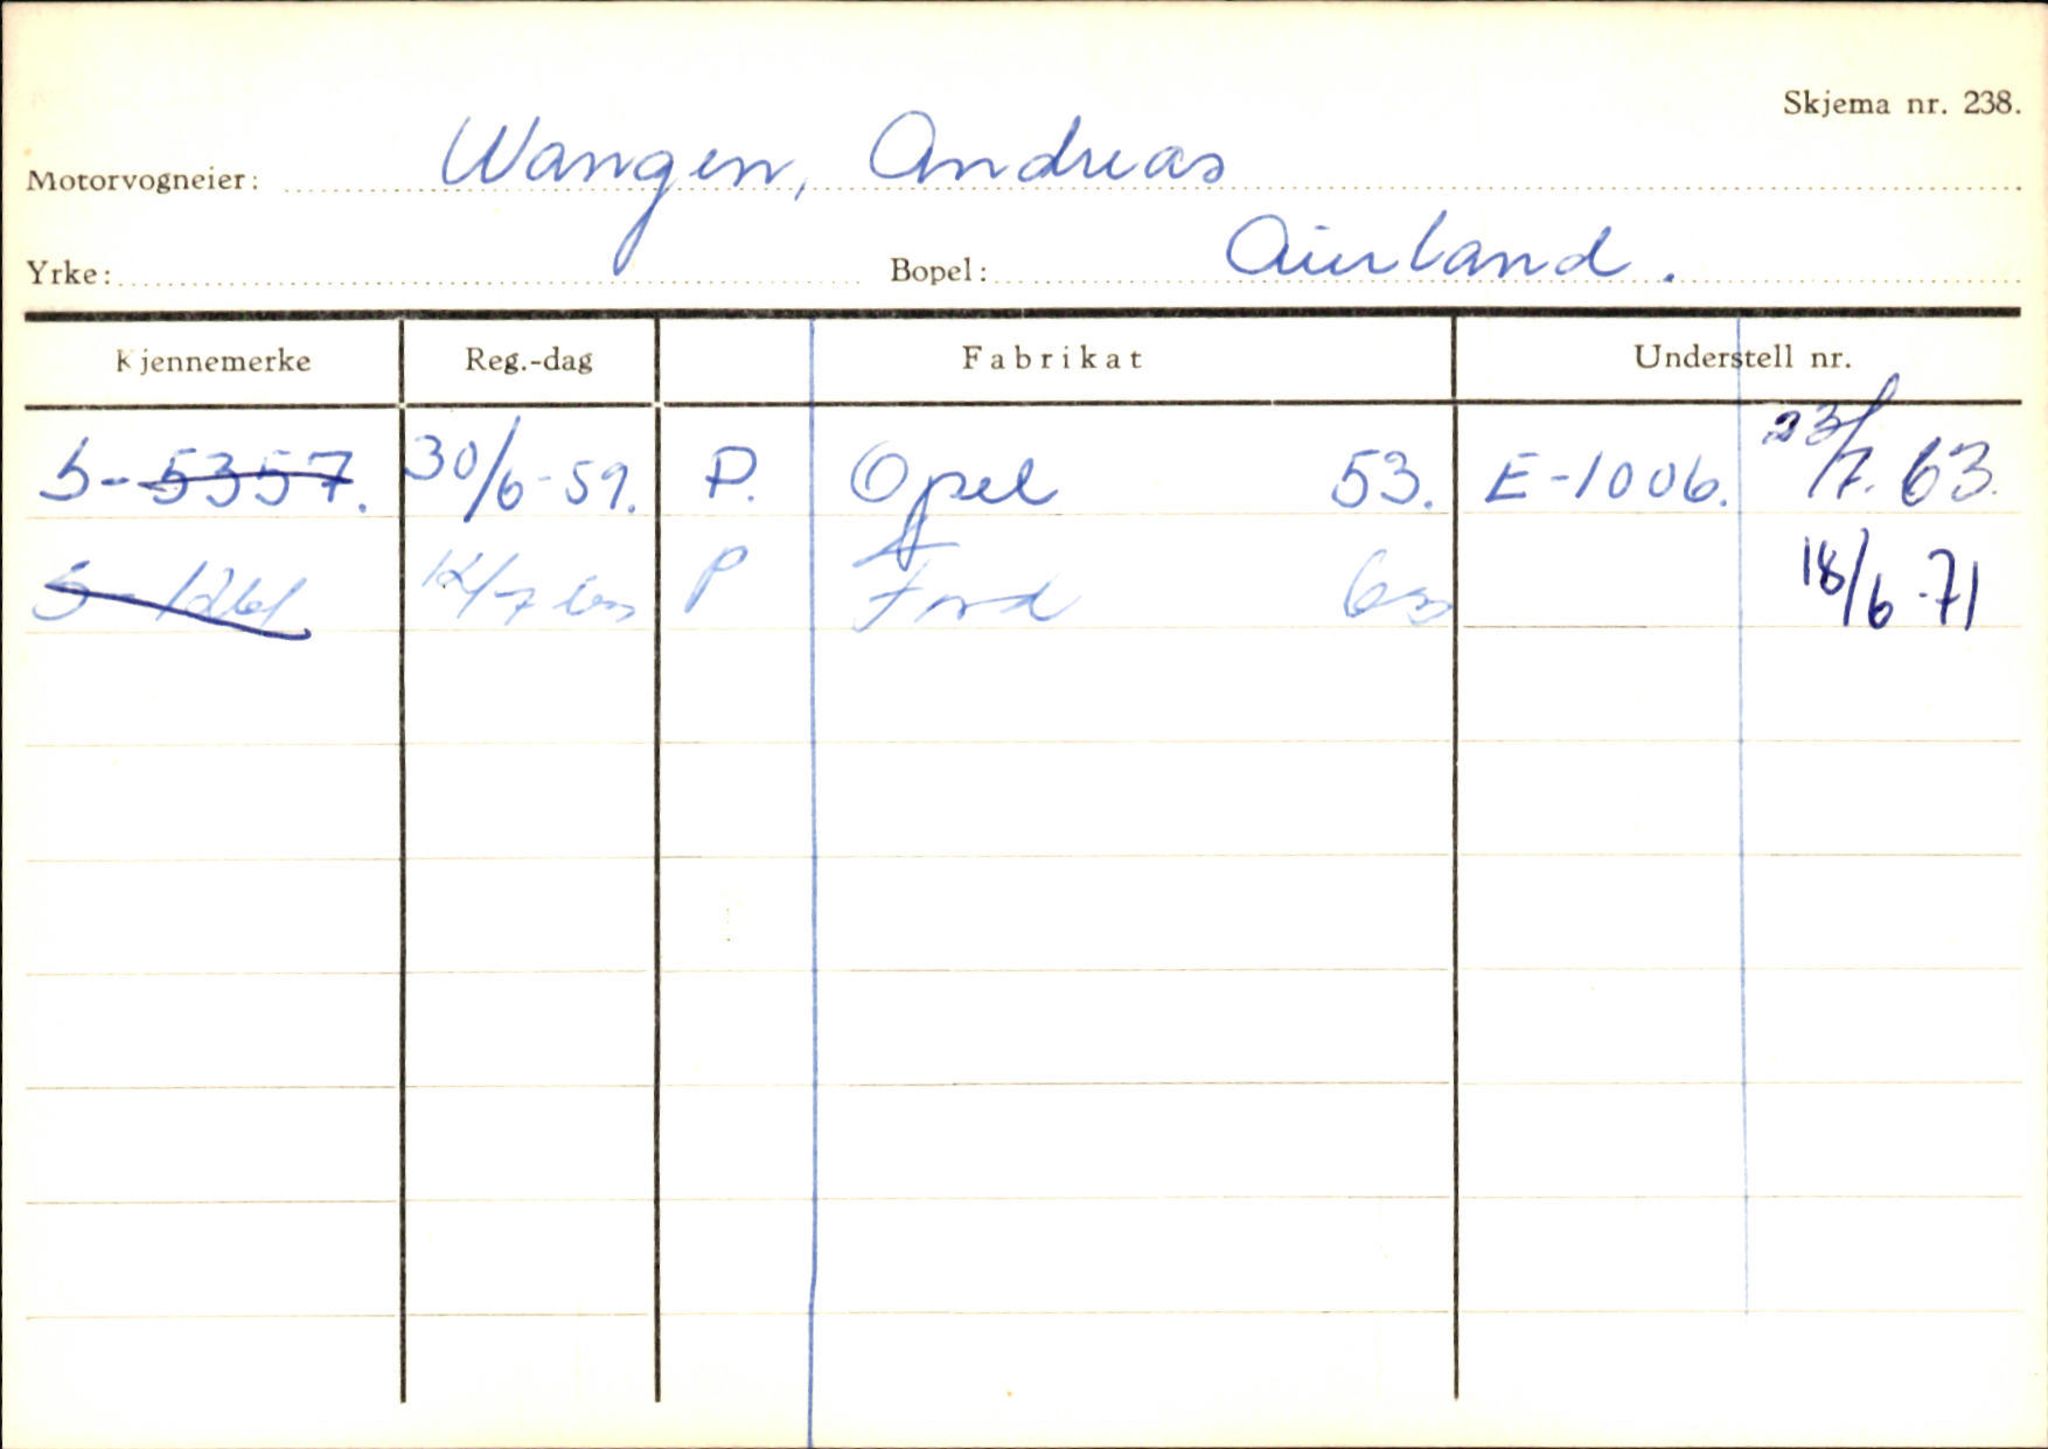 Skjema nr. 238.
Motorvogneier: Wangen, Andreas
Yrke: Bopel: Aurland.
Kjennemerke Reg.-dag Fabrikat Understell nr.
S-5357. 30/6-59. P. Opel 53. E-1006. 23/7. 63.
S-1261 12/7 63 P Ford 63 18/6-71